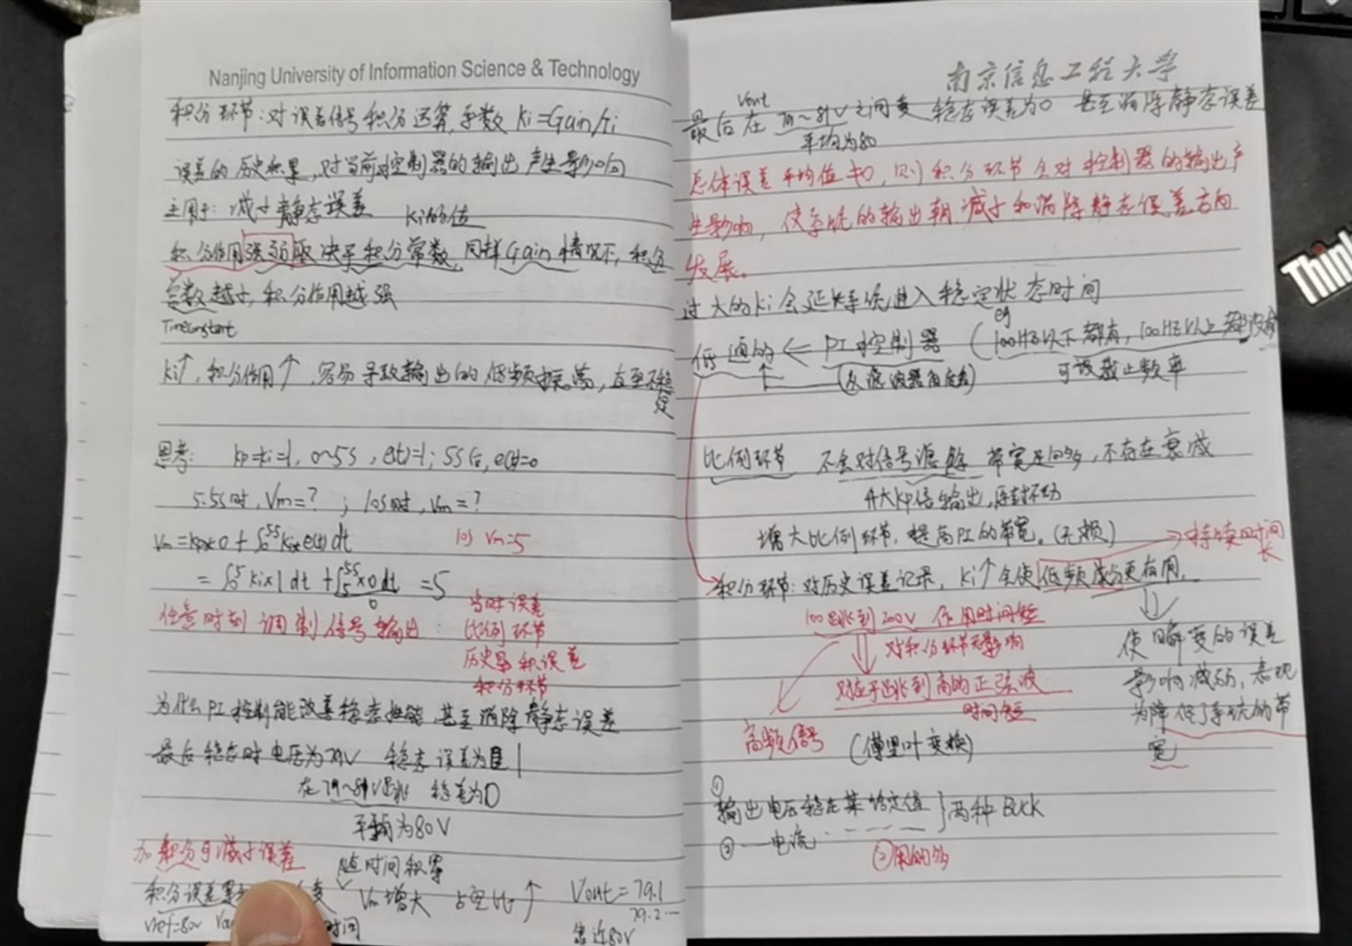 Nanjing University of Information Science & Technology
积分环节:对误差信号积分运算,系数 Ki=Gain/Ti
误差的历史积累,对当前对控制器的输出产生影响
主用于: 减小静态误差 Ki的值
积分作用强弱取决于积分常数,同样Gain情况下,积分
常数越小,积分作用越强
Timeconstant
Ki↑,积分作用↑,容易导致输出的低频振荡,甚至不稳
定
思考: kp=ki=1, 0~5s, e(t)=1; 5s后, e(t)=0
5.5s时, Vm=? ; 10s时, Vm=?
Vm=kp×0+∫₀⁵⁵ki×e(t)dt 10s Vm=5
=∫₀⁵ki×1dt+∫₅⁵⁵×0dt =5
0
任意时刻 调制信号输出: 当时误差
比例环节
历史累积误差
积分环节
为什么PI控制能改善稳态性能,甚至消除静态误差
最后稳态时电压为79V 稳态误差为1
在79~81V跳 稳差为0
平均为80V
加积分可减小误差
随时间积累
积分误差 Vm增大 占空比↑ Vout=79.1
79.2--
Vref=80V 时间 靠近80V
南京信息工程大学
Vout
最后在79~81V之间变 稳态误差为0 甚至消除静态误差
平均为80
总体误差平均值≠0,则积分环节会对控制器的输出产
生影响,使系统的输出朝减小和消除静态误差方向
发展。
过大的Ki会延长系统进入稳定状态时间
eg
低通的 ← PI控制器 (100HZ以下都有,100HZ以上都没有
(从滤波器角度看) 可谈截止频率
比例环节 不会对信号滤除 带宽足够多,不存在衰减
放大Kp倍输出,原封不动
增大比例环节,提高PI的带宽。(无损) →持续时间
长
积分环节:对历史误差记录,Ki↑会使低频成分更有用.
100跳到200V 作用时间短
对积分环节无影响
对应于跳到高的正弦波
时间短
高频信号 (傅里叶变换)
使瞬变的误差
影响减弱,表现
为降低了系统的带
宽
① 输出电压稳在某给定值 }两种Buck
② --电流-------
②用的多